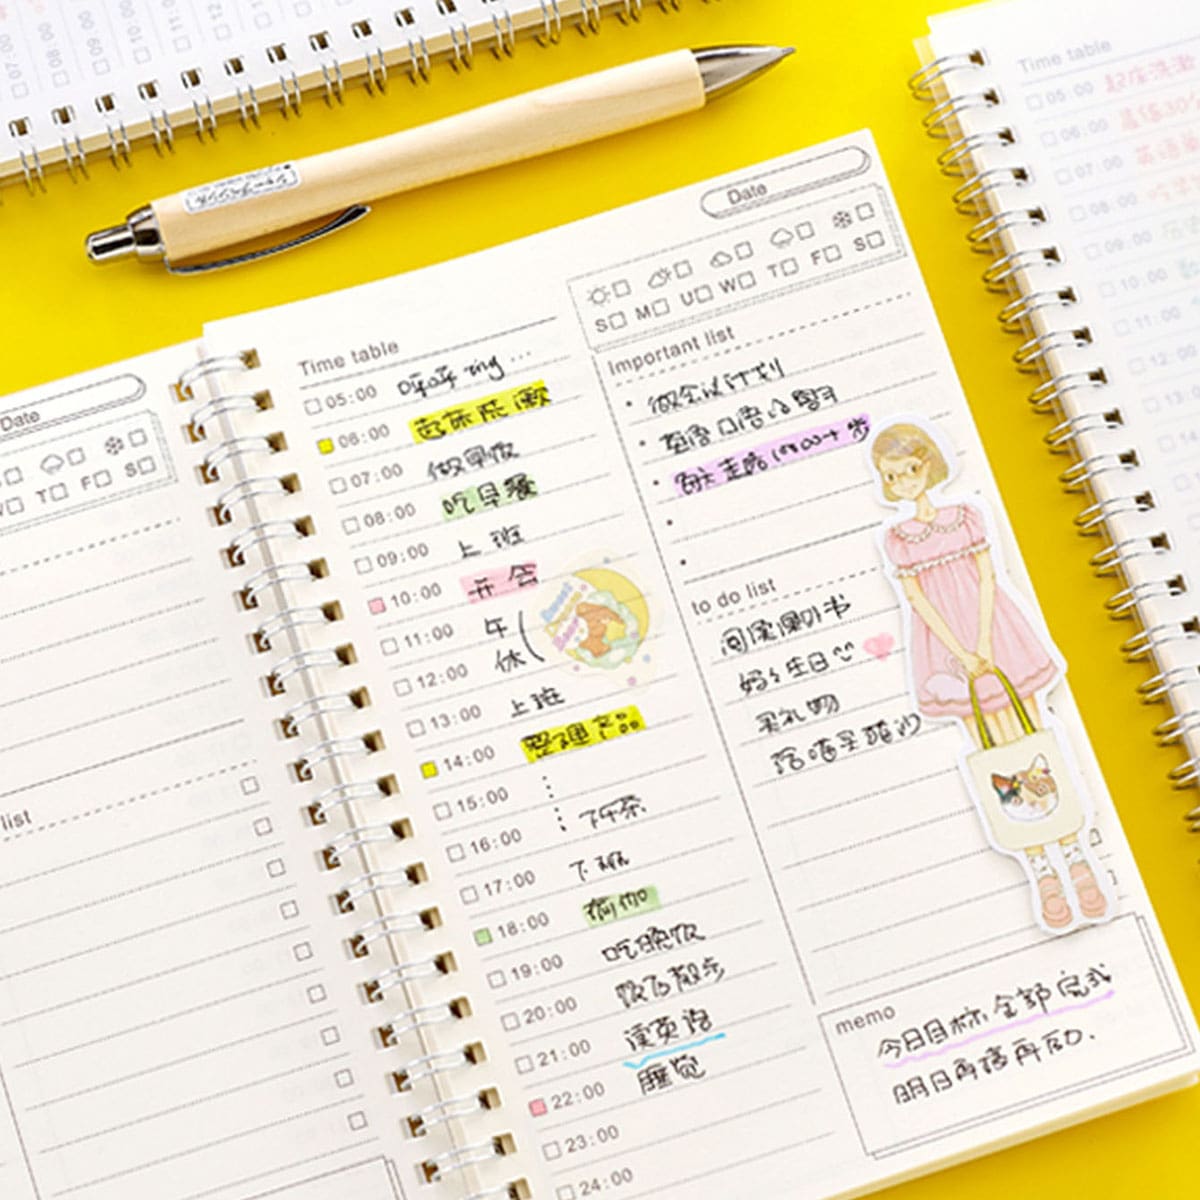 07:00
08:00
09:00
10:00
Date
T F S
list
Time table
05:00 呼呼 ing...
06:00 起床洗漱
07:00 做早饭
08:00 吃早餐
09:00 上班
10:00 开会
11:00 午
12:00 休
13:00 上班
14:00 整理产品
15:00
16:00 下午茶
17:00 下班
18:00 瑜伽
19:00 吃晚饭
20:00 饭后散步
21:00 读英语
22:00 睡觉
23:00
24:00
Date
S M U W T F S
Important list
做会议计划
英语口语的学习
每天走路 10000+ 步
to do list
阅读
妈妈生日
买礼物
memo
今日目标全部完成
明日再接再励.
Time table
05:00 起床洗漱
06:00
07:00 英语
08:00
09:00
10:00
11:00
12:00